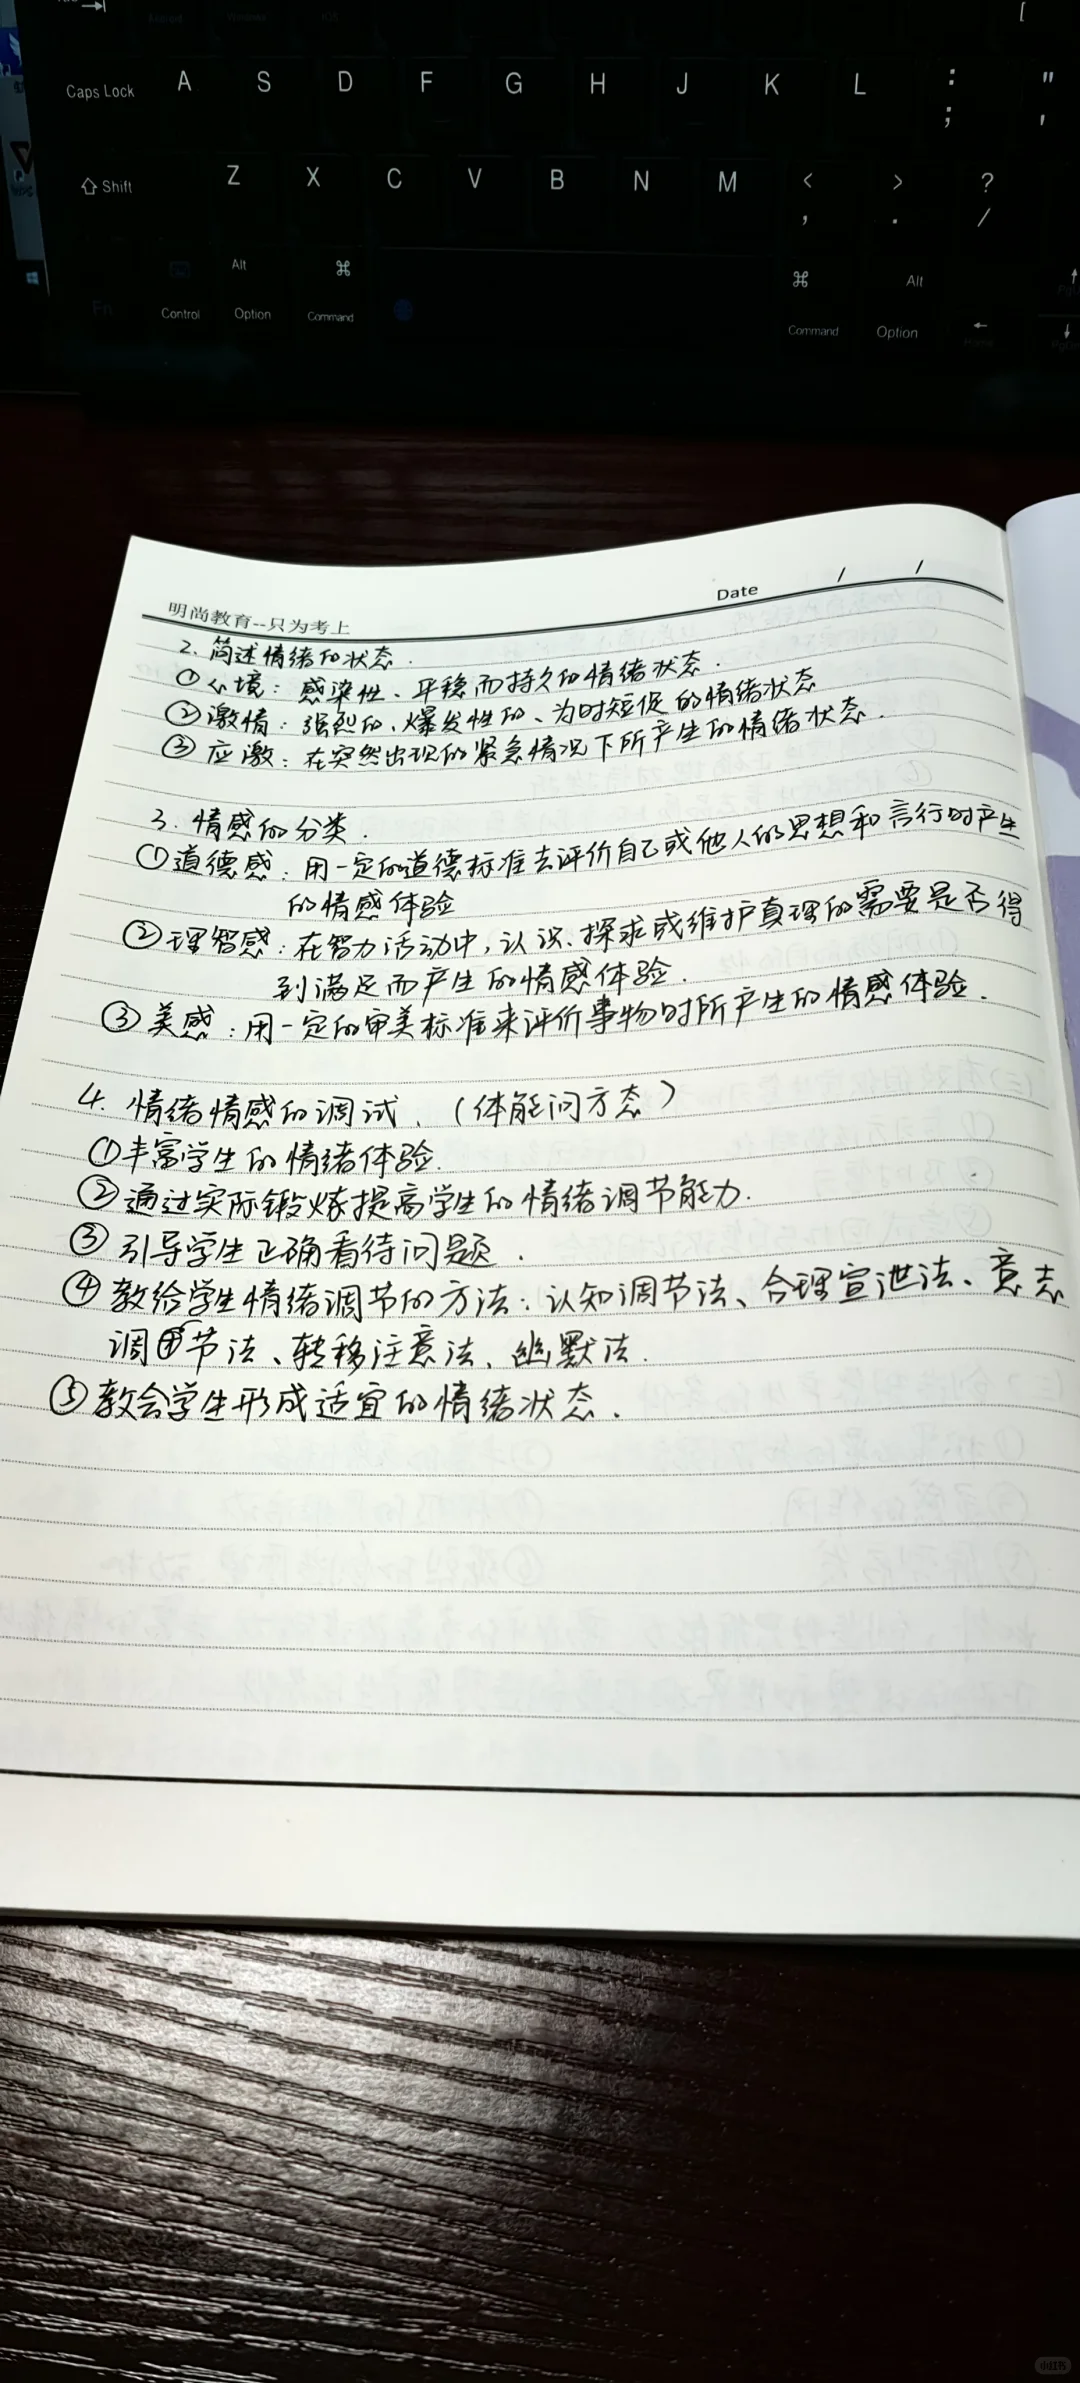 Caps Lock A S D F G H J K L : ; " '
Shift Z X C V B N M < , > . ? /
Alt ⌘ ⌘ Alt
Fn Control Option Command Command Option Home
明尚教育--只为考上 Date / /
2. 简述情绪的状态.
①心境: 感染性、平稳而持久的情绪状态.
②激情: 强烈的、爆发性的、为时短促的情绪状态
③应激: 在突然出现的紧急情况下所产生的情绪状态.
3. 情感的分类.
①道德感: 用一定的道德标准去评价自己或他人的思想和言行时产生
的情感体验
②理智感: 在智力活动中, 认识、探求或维护真理的需要是否得
到满足而产生的情感体验.
③美感: 用一定的审美标准来评价事物时所产生的情感体验.
4. 情绪情感的调试. (体能问方态)
①丰富学生的情绪体验.
②通过实际锻炼提高学生的情绪调节能力.
③引导学生正确看待问题.
④教给学生情绪调节的方法: 认知调节法、合理宣泄法、意志
调节法、转移注意法、幽默法.
⑤教会学生形成适宜的情绪状态.
小红书